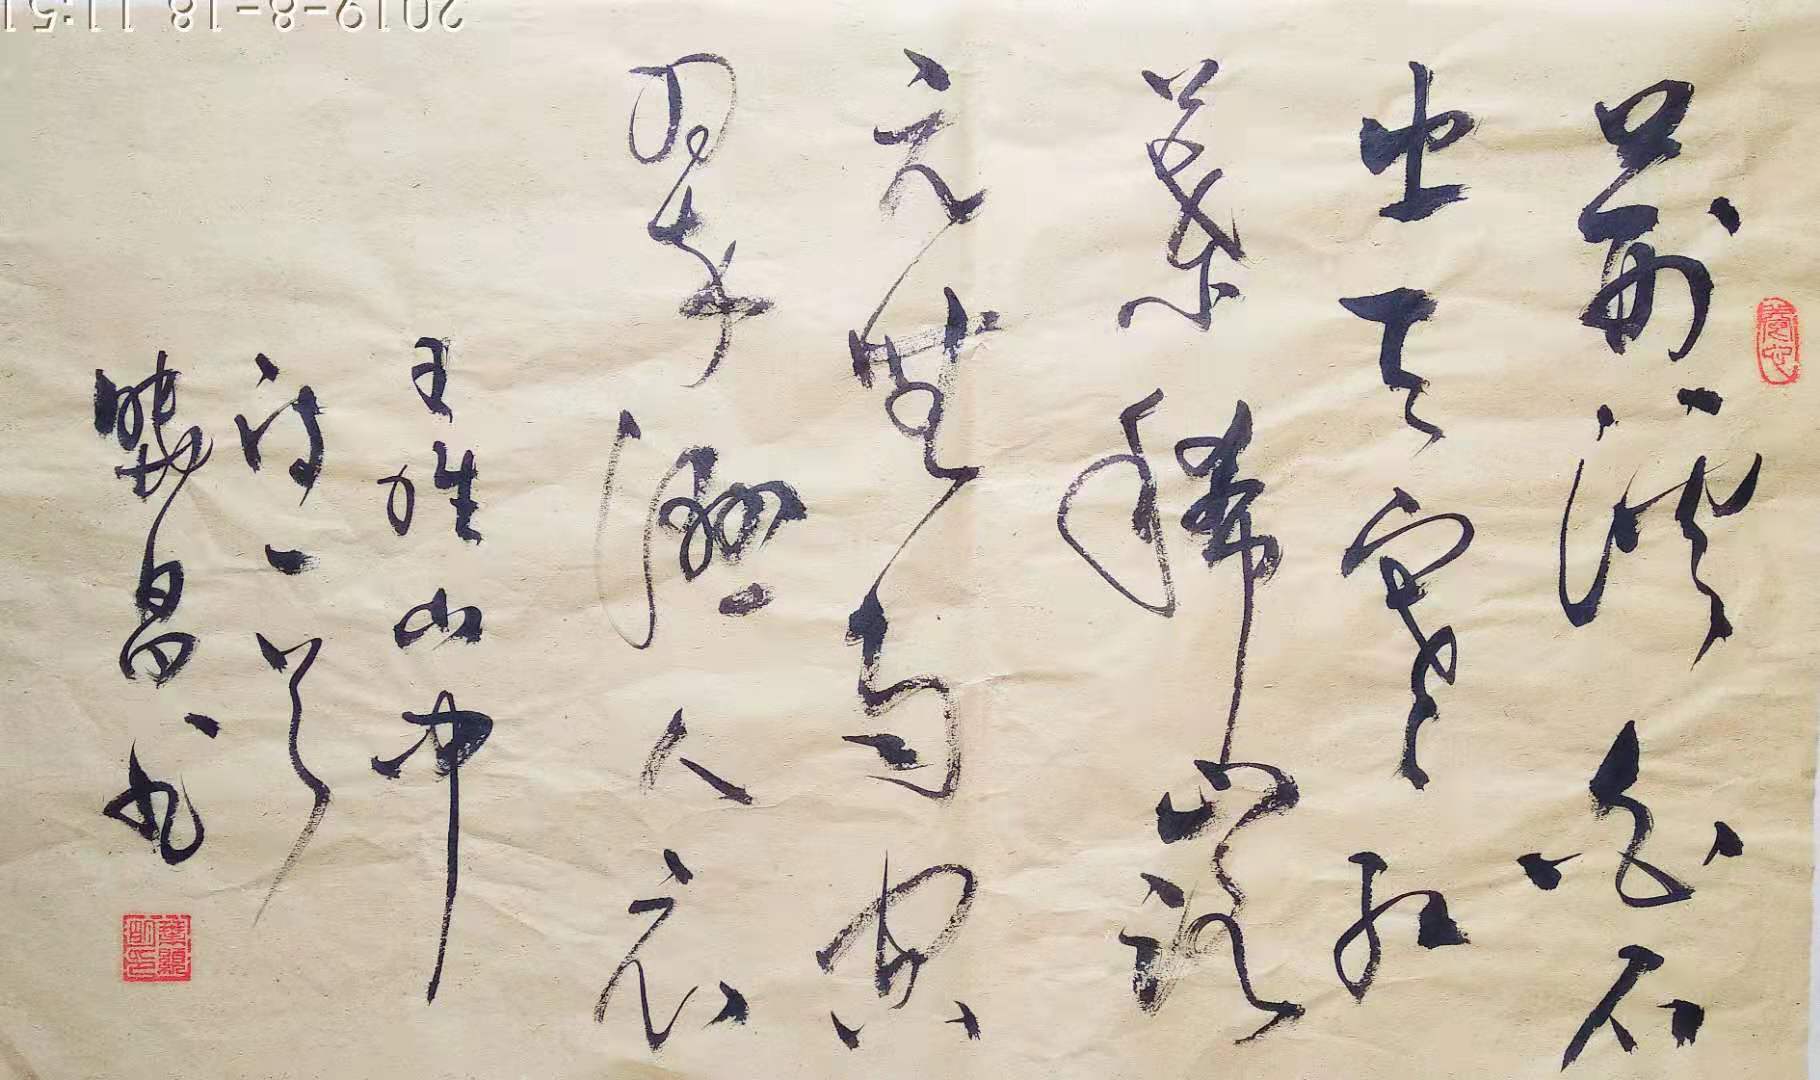 荆溪白石
出天寒红
葉稀山路
元無雨空
翠濕人衣
王維山中
诗一首
昌书
2019-8-18 11:51